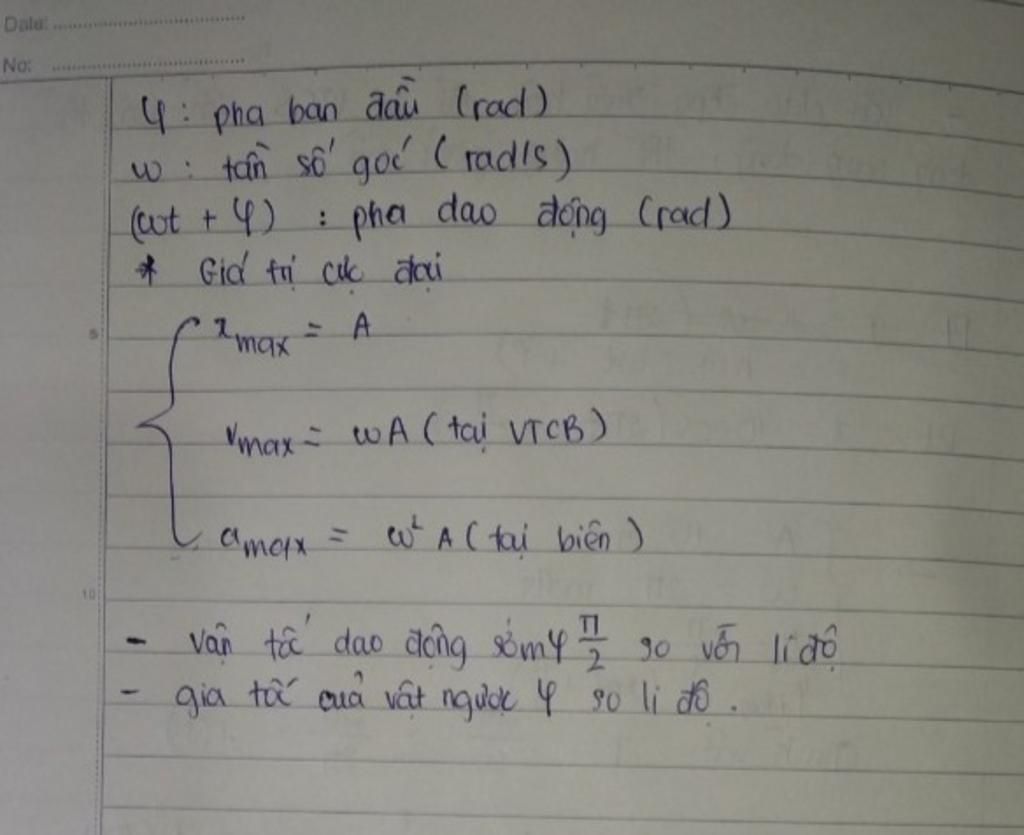 Date:
No:
φ: pha ban đầu (rad)
ω : tần số góc (rad/s)
(ωt + φ) : pha dao động (rad)
* Giá trị cực đại
x max = A
5
v max = ωA (tại VTCB)
a max = ω² A (tại biên)
10
- vận tốc dao động sớm φ π/2 so với li độ
- gia tốc của vật ngược φ so li độ.